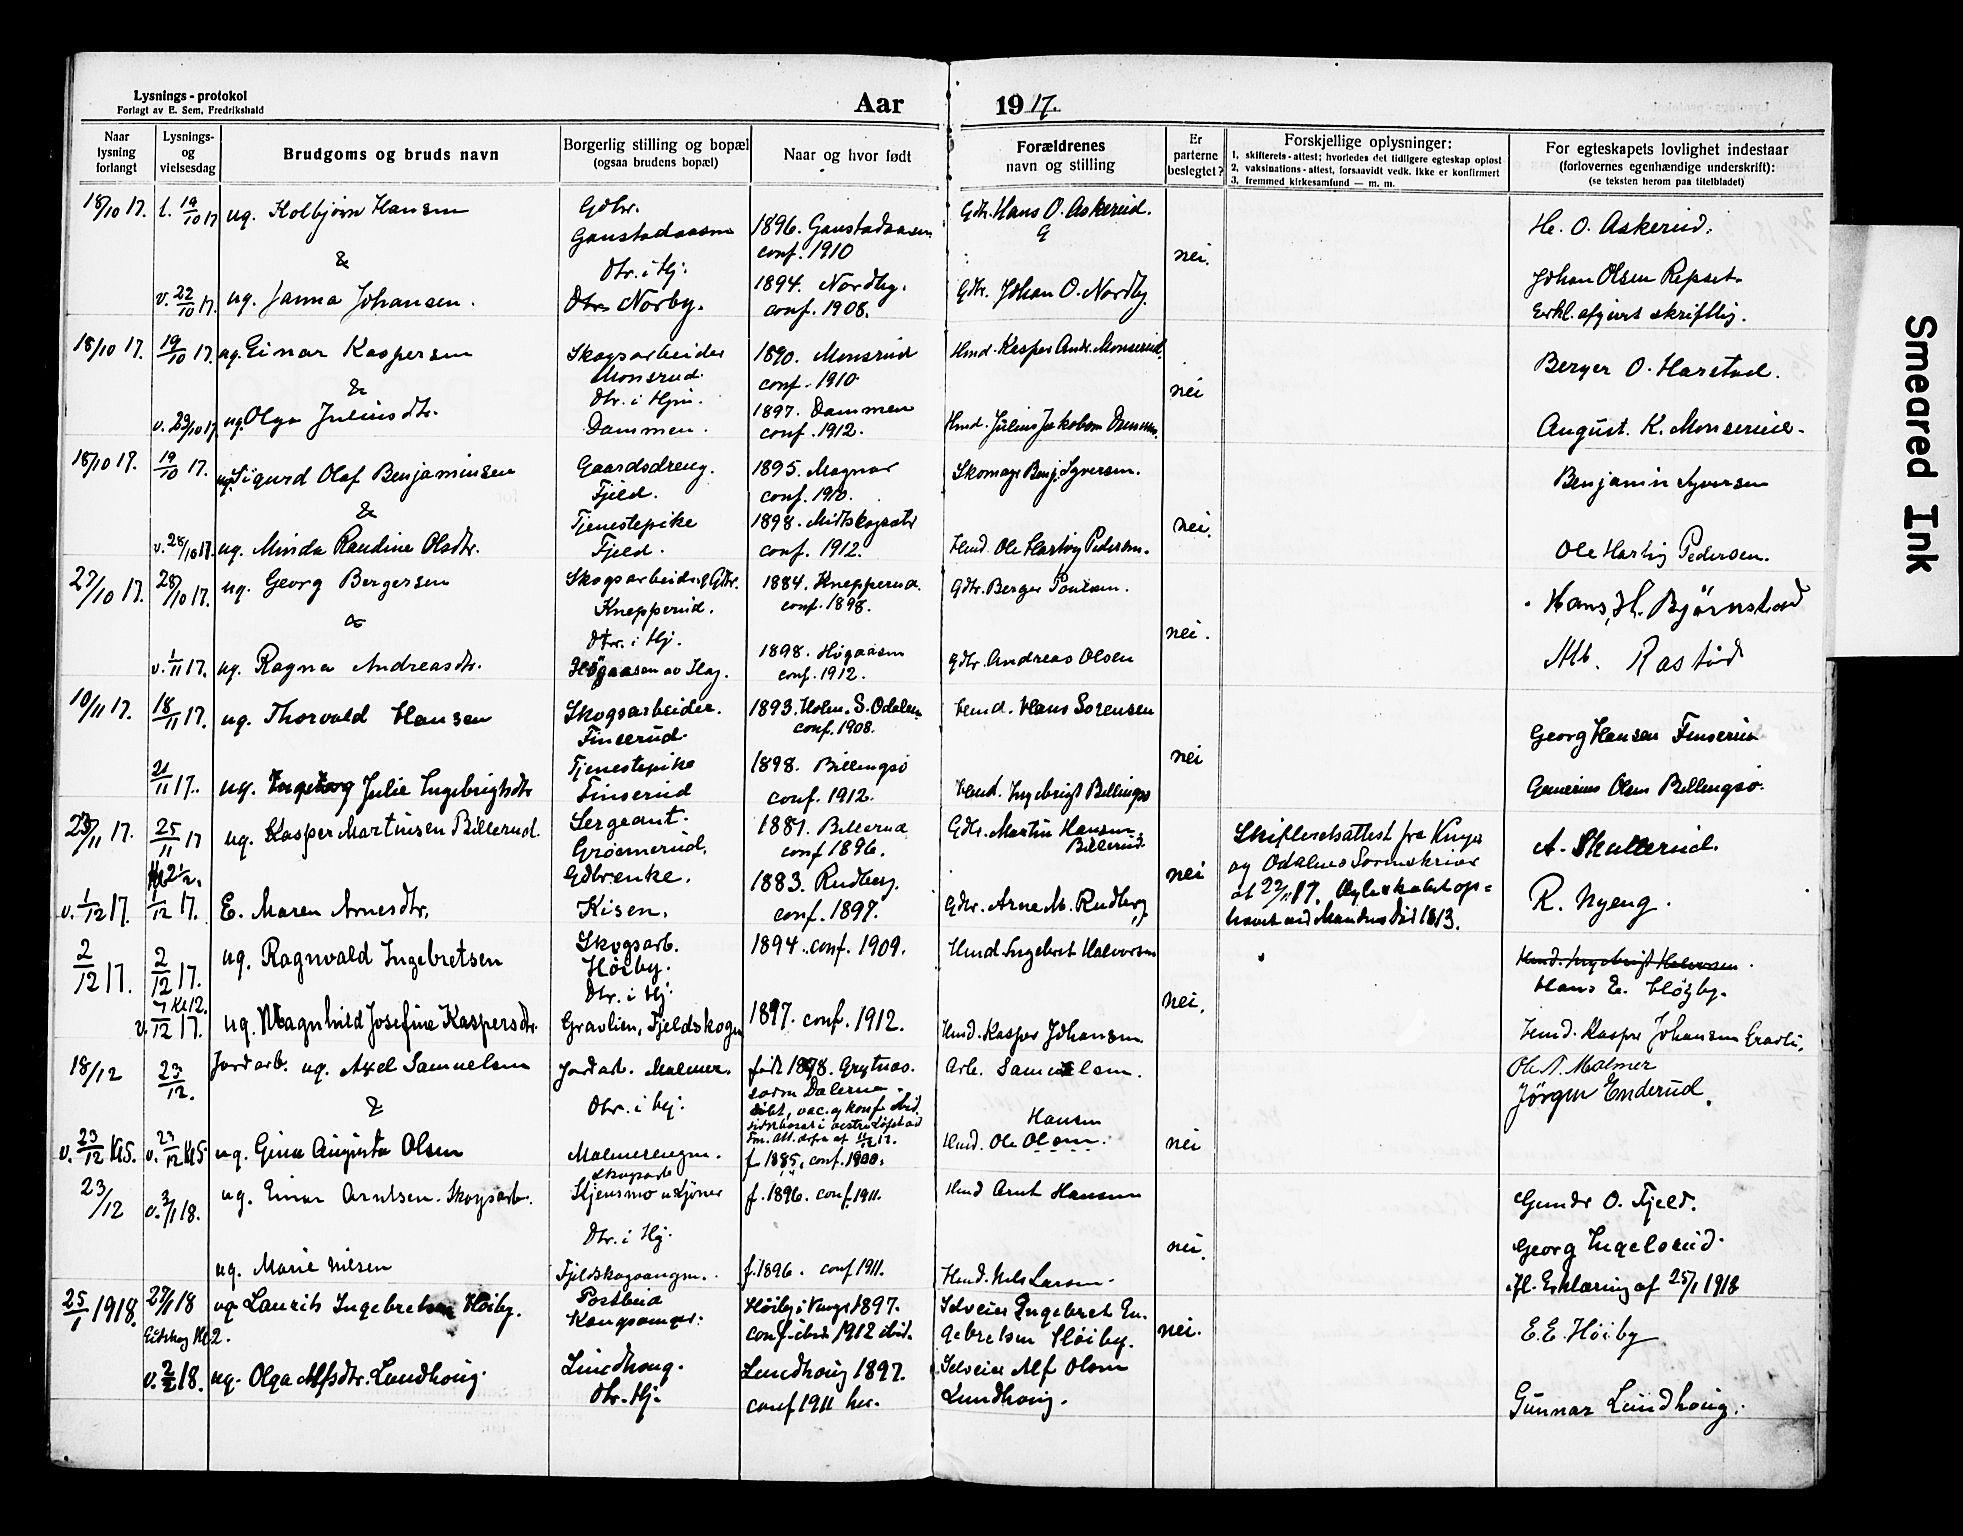 Lysnings - protokol
Forlagt av E. Sem, Fredrikshald
Aar 1917.
Naar lysning forlangt
Lysnings- og vielsesdag
Brudgoms og bruds navn
Borgerlig stilling og bopæl
(ogsaa brudens bopæl)
Naar og hvor født
Forældrenes
navn og stilling
Er parterne beslegtet?
Forskjellige oplysninger:
1, skifterets-attest; hvorledes det tidligere egteskap opløst
2, vaksinations-attest, forsaavidt vedk. ikke er konfirmert
3, fremmed kirkesamfund — m. m.
For egteskapets lovlighet indestaar
(forlovernes egenhændige underskrift):
(se teksten herom paa titelbladet)
18/10 17. l. 19/10 17 ug. Kolbjørn Hansen Gdbr. Gaustadaasen 1896. Gaustadaasen conf. 1910 Gdbr. Hans O. Askerud. H. O. Askerud.
& Dtr. i Hj. nei.
v. 22/10 17. ug. Janna Johansen. Norby. 1894. Nordby. conf. 1908. Gdbr. Johan O. Nordby. Johan Olsen Repset.
Erkl. afgivet skriftlig.
18/10 17. 19/10 17. ug. Einar Kaspersen Skogsarbeider Monsrud. 1890. Monsrud conf. 1910. Hmd. Kasper Andr. Monserud. Berger O. Harstad.
& Dtr. i Hjm. nei
v. 29/10 17. ug. Olga Juliusdtr. Dammen. 1897. Dammen conf. 1912. Hmd. Julius Jakobsen Dammen. August. K. Monserud.
18/10 17. 19/10 17. ug. Sigurd Olaf Benjaminsen Gaardsdreng. Fjeld. 1895. Magnor conf. 1910. Skomager Benj. Syversen. Benjamin Syversen
& nei.
v. 28/10 17. ug. Minda Randine Olsdtr. Tjenestepike Fjeld. 1898. conf. 1912. Hmd. Ole Hartvig Pedersen. Ole Hartvig Pedersen.
27/10 17. 28/10 17. ug. Georg Bergersen Skogsarbeider, Gdbr. Knepperud. 1884. Knepperud. conf. 1898. Gdbr. Berger Paulsen. Hans H. Bjørnstad
& Dtr. i Hj. nei.
v. 1/11 17. ug. Ragna Andreasdtr. Høgaasen av Hag. 1898. Høgaasen conf. 1912. Gdbr. Andreas Olsen Alb. Rastad
10/11 17. 18/11 17. ug. Thorvald Hansen Skogsarbeider. Finserud. 1893. Holm. S. Odalen conf. 1908. Hmd. Hans Sorensen Georg Hansen Finserud
nei
21/11 17. ug. Ingeborg Julie Ingebrigtsdtr Tjenestepike Finserud 1898. Billingsø conf. 1912. Hmd. Ingebrigt Billingsø Olsen Billingsø.
23/11 17. 25/11 17 ug. Kasper Martinsen Billerud. Sergeant. 1881. Billerud conf 1896. Gdbr. Martin Hansen Billerud. Skifteretsattest fra Vinger og Odalens Sorenskriver af 22/11 17. Egteskabet ophævet ved Mandens Død 1913. A. Skullerud.
Kl 2 1/2. nei
v. 1/12 17. 1/12 17. E. Maren Arnesdtr. Gdbrenke. Kisen. 1883. Rudberg. conf. 1897. Gdbr. Arne M. Rudberg R. Nyeng.
2/12 17. 2/12 17. ug. Ragnvald Ingebretsen Skogsarb. Høiby. 1894. conf. 1909. Hmd. Ingebret Halvorsen Hmd. Ingebrigt Halvorsen.
Hans E. Høiby.
Dtr. i Hj. nei.
v. 7/12 17. Kl 12. ug. Magnhild Josefine Kaspersdtr. Gravlien, Fjeldskogen 1897. conf. 1912. Hmd. Kasper Johansen Hmd. Kasper Johansen Gravli.
18/12 23/12. Jordarb. ug. Axel Samuelsen Jordarb. Malmer. født 1878. Grytnæs. Dalerne. Arb. Samuelsen. Ole N. Malmer
& Dtr. i hj. døbt, vac. og konf. ibid. Jørgen Enderud.
v. 23/12 Kl 5. v. 23/12 Kl 5 ug. Gina Augusta Olsen Malmerengen. f 1885, conf. 1900. Hmd. Ole Olsen. Hansen nei
23/12 v. 3/1 18. ug. Einar Arntsen. Skogsarb. Skogsarb f. 1896. conf. 1911. Hmd Arnt Hansen Gunder O. Fjeld.
Dtr. i Hj. nei. Georg Ingelsrud.
ug. Marie Nilsen Fjeldskogvangen. f. 1896. conf 1911. Hmd. Nils Larsen. ifl. Erklæring af 25/1 1918
25/1 1918. 27/1 18 ug Laurits Ingebretsen Høiby. Postbud Kongsvinger. Høiby i Vinger 1897. conf. ibid 1912 ibid. Selveier Ingebret Engebretsen Høiby. nei. E. E. Høiby
Eidskog Kl 2.
v. 2/2 18. ug. Olga Alfsdtr. Lundhoug. Lundhoug. Dtr. Hj. Lundhoug 1897. conf 1911 her. Selveier Alf Olsen Lundhoug. Gunnar Lundhoug.
Smeared Ink